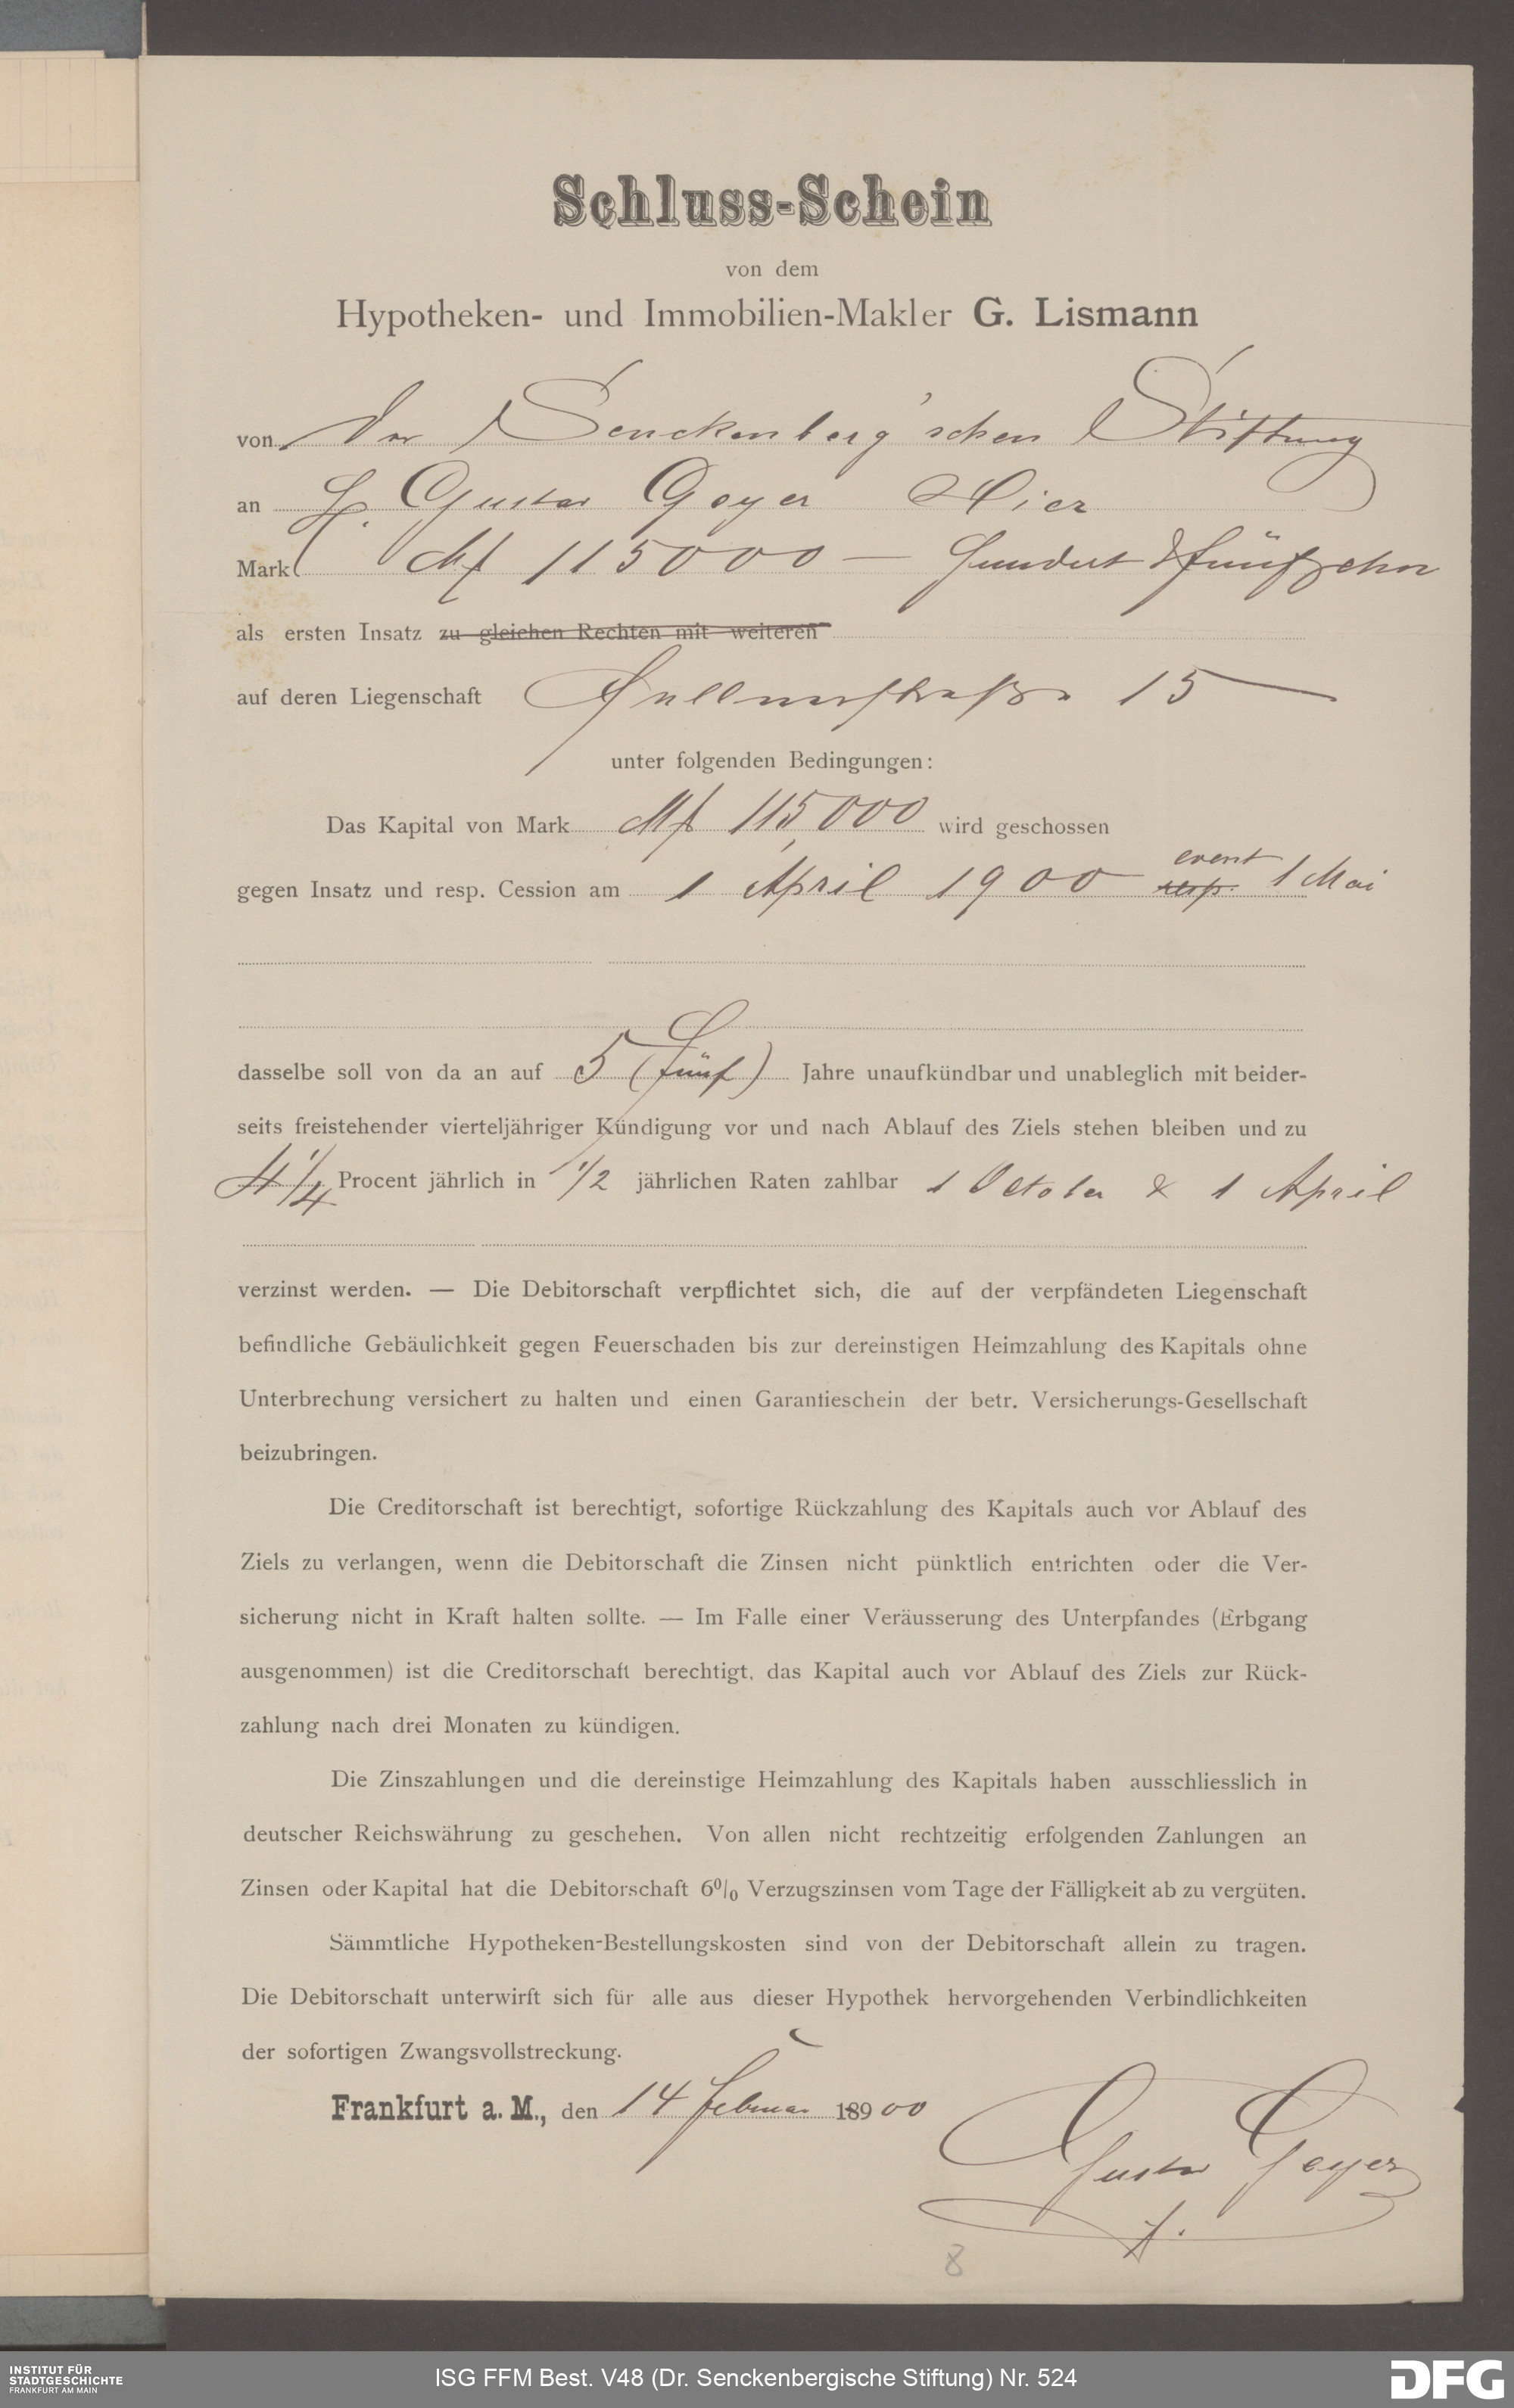 Schluss-Schein
von dem
Hypotheken- und Immobilien-Makler G. Lismann
von der Senckenberg'schen Stiftung
an H. Gustav Geyer Hier
Mark M 115000 — Hundert & fünfzehn
als ersten Insatz zu gleichen Rechten mit weiteren
auf deren Liegenschaft 15
unter folgenden Bedingungen:
Das Kapital von Mark M 115,000 wird geschossen
event
gegen Insatz und resp. Cession am 1 April 1900 resp. 1 Mai
dasselbe soll von da an auf 5 (fünf) Jahre unaufkündbar und unableglich mit beider-
seits freistehender vierteljähriger Kündigung vor und nach Ablauf des Ziels stehen bleiben und zu
4 1/4 Procent jährlich in 1/2 jährlichen Raten zahlbar 1 October & 1 April
verzinst werden. — Die Debitorschaft verpflichtet sich, die auf der verpfändeten Liegenschaft
befindliche Gebäulichkeit gegen Feuerschaden bis zur dereinstigen Heimzahlung des Kapitals ohne
Unterbrechung versichert zu halten und einen Garantieschein der betr. Versicherungs-Gesellschaft
beizubringen.
Die Creditorschaft ist berechtigt, sofortige Rückzahlung des Kapitals auch vor Ablauf des
Ziels zu verlangen, wenn die Debitorschaft die Zinsen nicht pünktlich entrichten oder die Ver-
sicherung nicht in Kraft halten sollte. — Im Falle einer Veräusserung des Unterpfandes (Erbgang
ausgenommen) ist die Creditorschaft berechtigt, das Kapital auch vor Ablauf des Ziels zur Rück-
zahlung nach drei Monaten zu kündigen.
Die Zinszahlungen und die dereinstige Heimzahlung des Kapitals haben ausschliesslich in
deutscher Reichswährung zu geschehen. Von allen nicht rechtzeitig erfolgenden Zahlungen an
Zinsen oder Kapital hat die Debitorschaft 6% Verzugszinsen vom Tage der Fälligkeit ab zu vergüten.
Sämmtliche Hypotheken-Bestellungskosten sind von der Debitorschaft allein zu tragen.
Die Debitorschaft unterwirft sich für alle aus dieser Hypothek hervorgehenden Verbindlichkeiten
der sofortigen Zwangsvollstreckung.
Frankfurt a. M., den 14 Februar 18900
Gustav Geyer
8
INSTITUT FÜR
STADTGESCHICHTE
FRANKFURT AM MAIN
ISG FFM Best. V48 (Dr. Senckenbergische Stiftung) Nr. 524
DFG